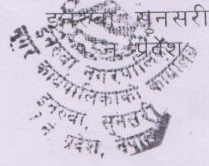 इनरुवा सुनसरी
१ नं प्रदेश
इनरुवा नगरपालिका
नगर कार्यपालिकाको कार्यालय
इनरुवा, सुनसरी
प्रदेश, नेपाल